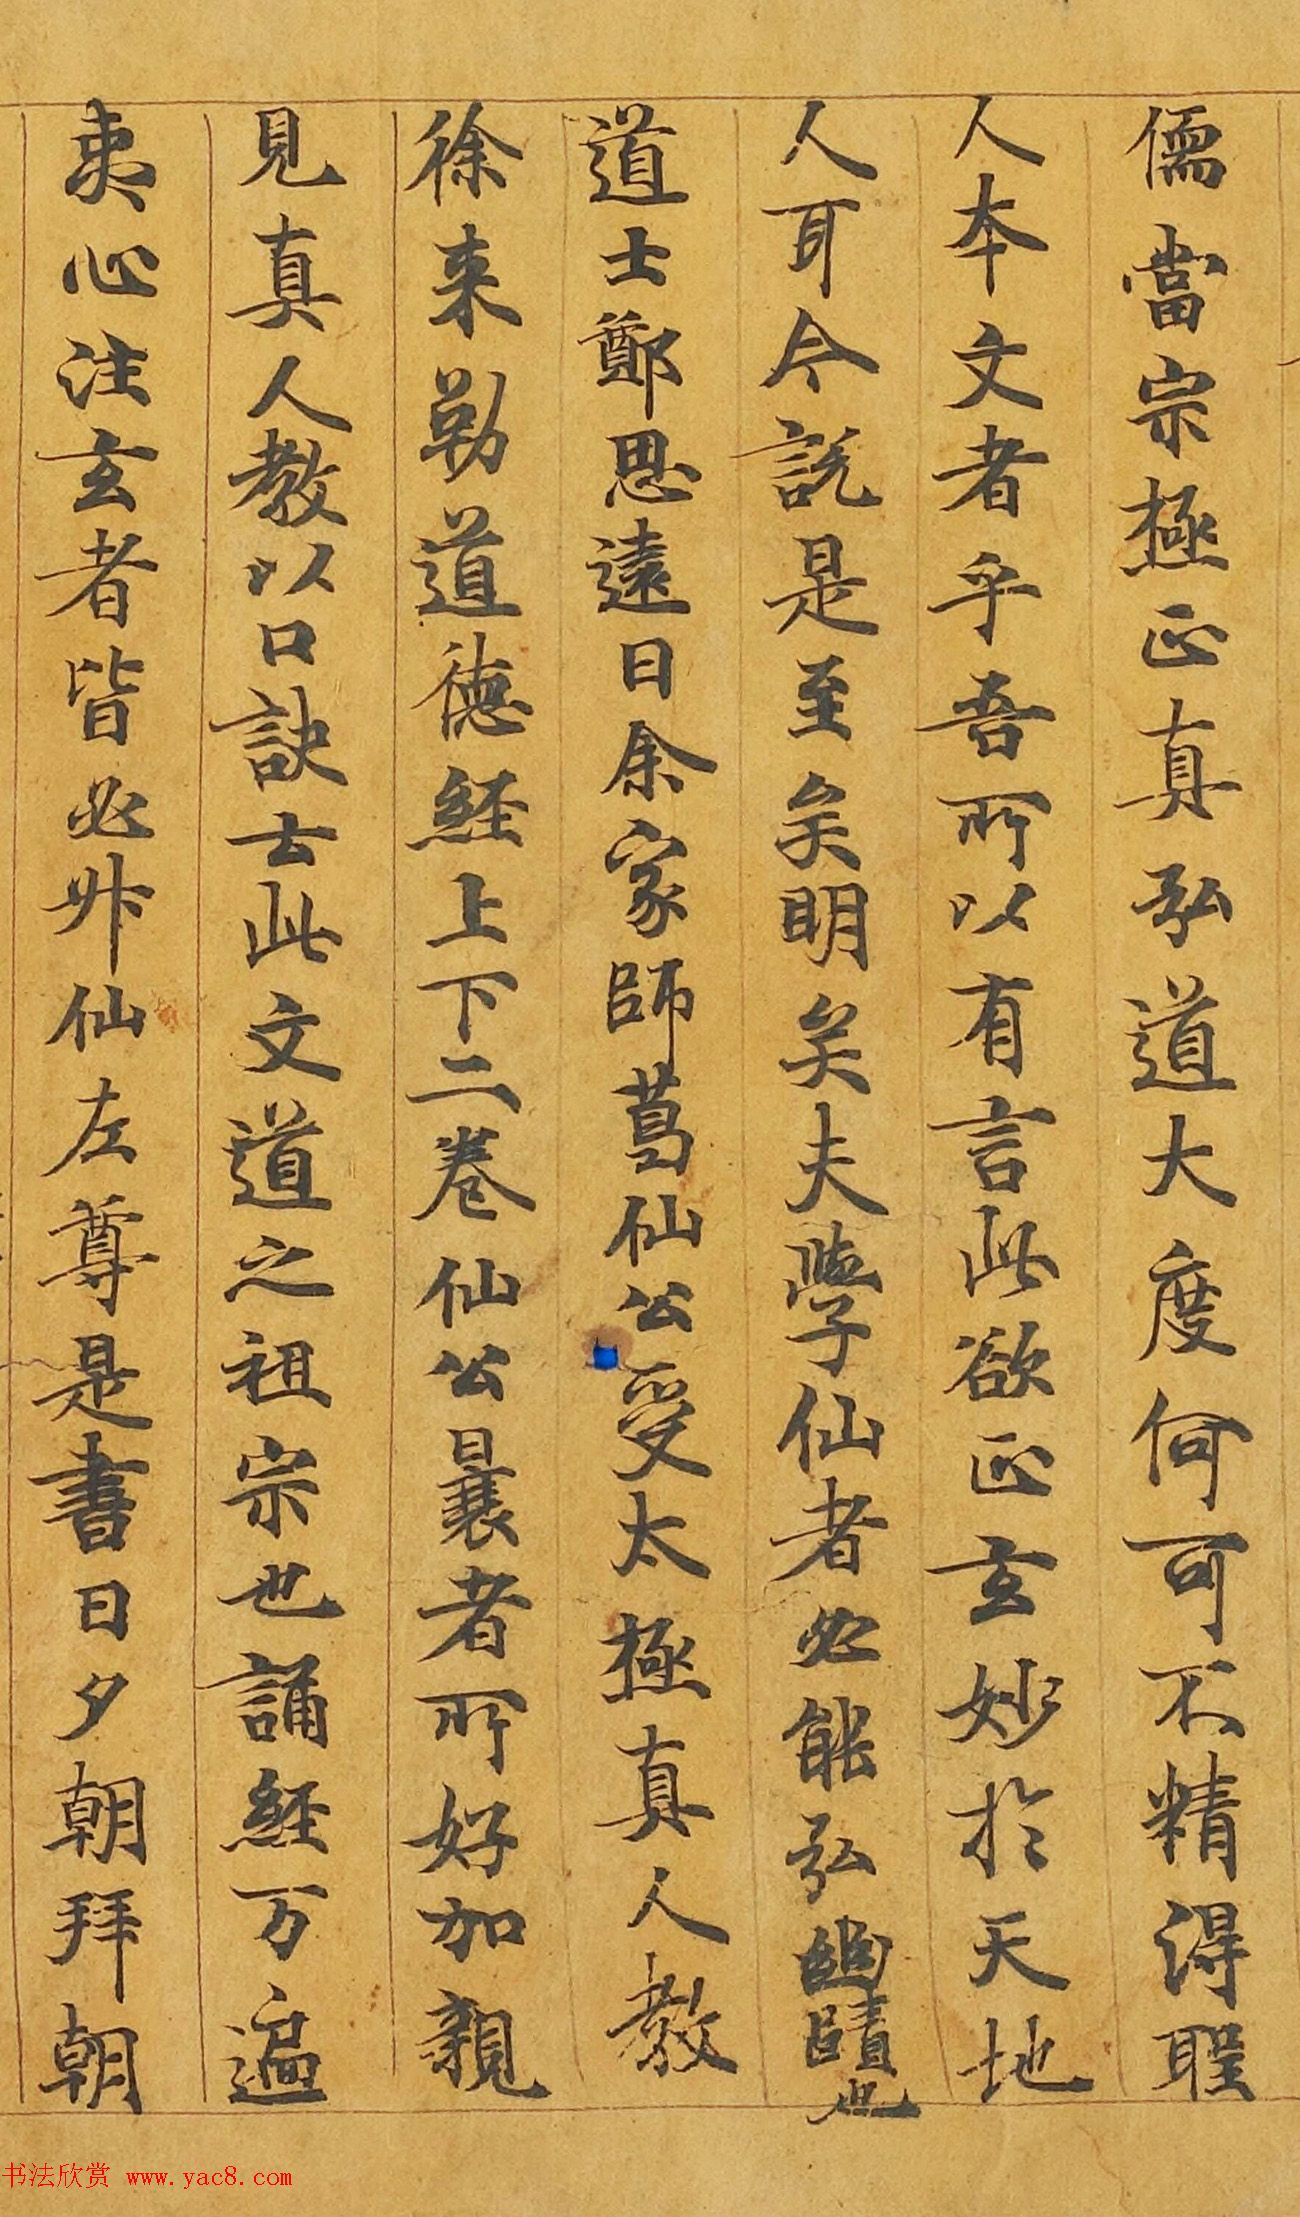 儒當宗極正真弘道大度何可不精得聖
人本文者乎吾所以有言此欲正玄妙於天地
人耳今説是至矣明矣夫學仙者必能弘幽賾也
道士鄭思遠曰余家師葛仙公受太極真人教
徐来勒道德經上下二卷仙公曩者所好加親
見真人教以口訣士此文道之祖宗也誦經万遍
夷心注玄者皆必升仙左尊是書日夕朝拜朝
书法欣赏 www.yac8.com